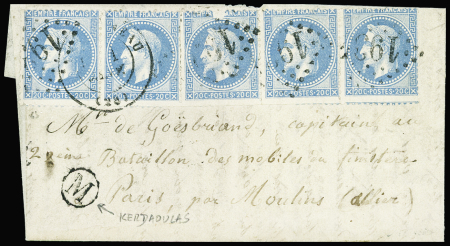 EMPIRE FRANÇAIS EMPIRE FRANÇAIS EMPIRE FRANÇAIS EMPIRE FRANÇAIS EMPIRE FRANÇAIS
20C POSTES 20C 20C POSTES 20C 20C POSTES 20C 20C POSTES 20C 20C POSTES 20C
Mr de Goësbriand, capitaine au
2eme Bataillon des mobiles du finistère
Paris, par Moulins (allier)
M
KERDADULAS